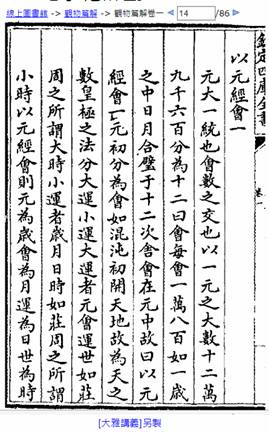 線上圖書館 -> 觀物篇解 -> 觀物篇解卷一 14 /86
欽定四庫全書
卷一
以元經會一
元大一統也會數之交也以一元之大數十二萬
九千六百分為十二曰會每會一萬八百如一歲
之中日月合璧于十二次舍會在元中故曰以元
經會一元初分為會如混沌初開天地故為天之
數皇極之法分大運小運大運者元會運世如莊
周之所謂大時小運者歲月日時如莊周之所謂
小時以元經會則元為歲會為月運為日世為時
[大雅講義]另製